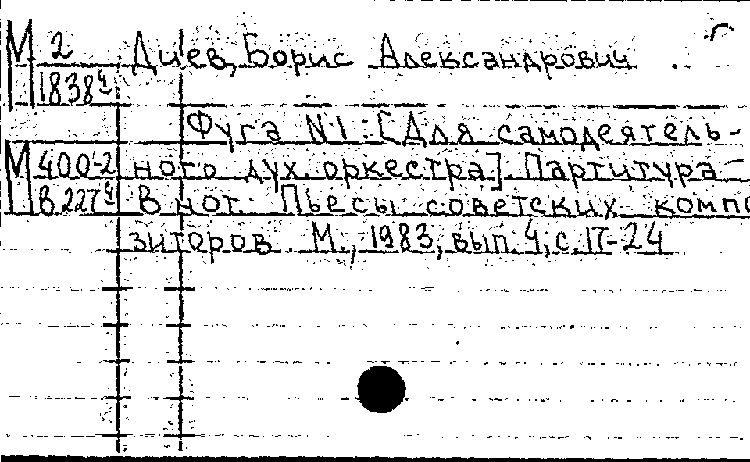 М 2 Диев, Борис Александрович г
1838ч
Фуга N1: [Для самодеятель-
М 400-2 ного дух. оркестра]. Партитура –
В 227ч В нот. Пьесы советских компо
зиторов. М., 1983, вып. 4, с. 17-24